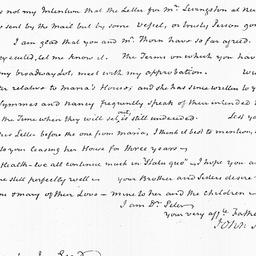 s not my Intention that the Letter for Mr. Livingston at New
e sent by the Mail but by some Vessel, or trusty Person going
I am glad that you and Mr. Thorn have so far agreed.
executed, let me know it. The Terms on which you have
my broadway Lot, meet with my approbation.
ter relative to Maria's House; and she has written to you
Symmes and Nancy frequently speak of their intended
the Time when they will set out is still undetermined. Lest you
this Letter before the one from Maria, I think it best to mention,
to you leasing her House for three years—
Health—we all continue much in "Statu quo"—I hope you a
re still perfectly well— your Brother and Sisters desire
you & many of their Loves—mine to her and the children
I am Dr. Peter
your very affte. Father
John